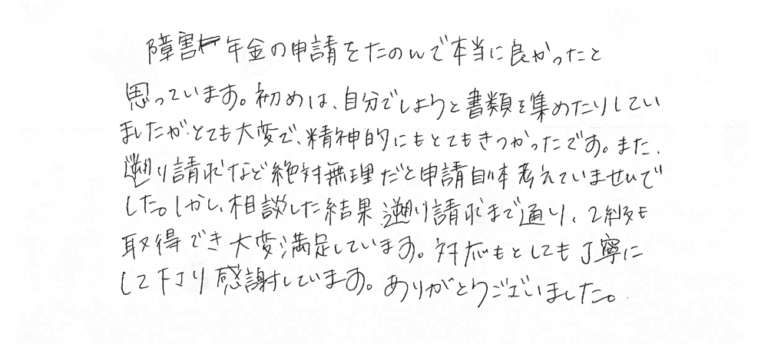 障害年金の申請をたのんで本当に良かったと
思っています。初めは、自分でしようと書類を集めたりしてい
ましたが、とても大変で、精神的にもとてもきつかったです。また、
遡り請求など絶対無理だと申請自体考えていませんで
した。しかし、相談した結果遡り請求まで通り、2級も
取得でき大変満足しています。対応もとしても丁寧に
して下さり感謝しています。ありがとうございました。